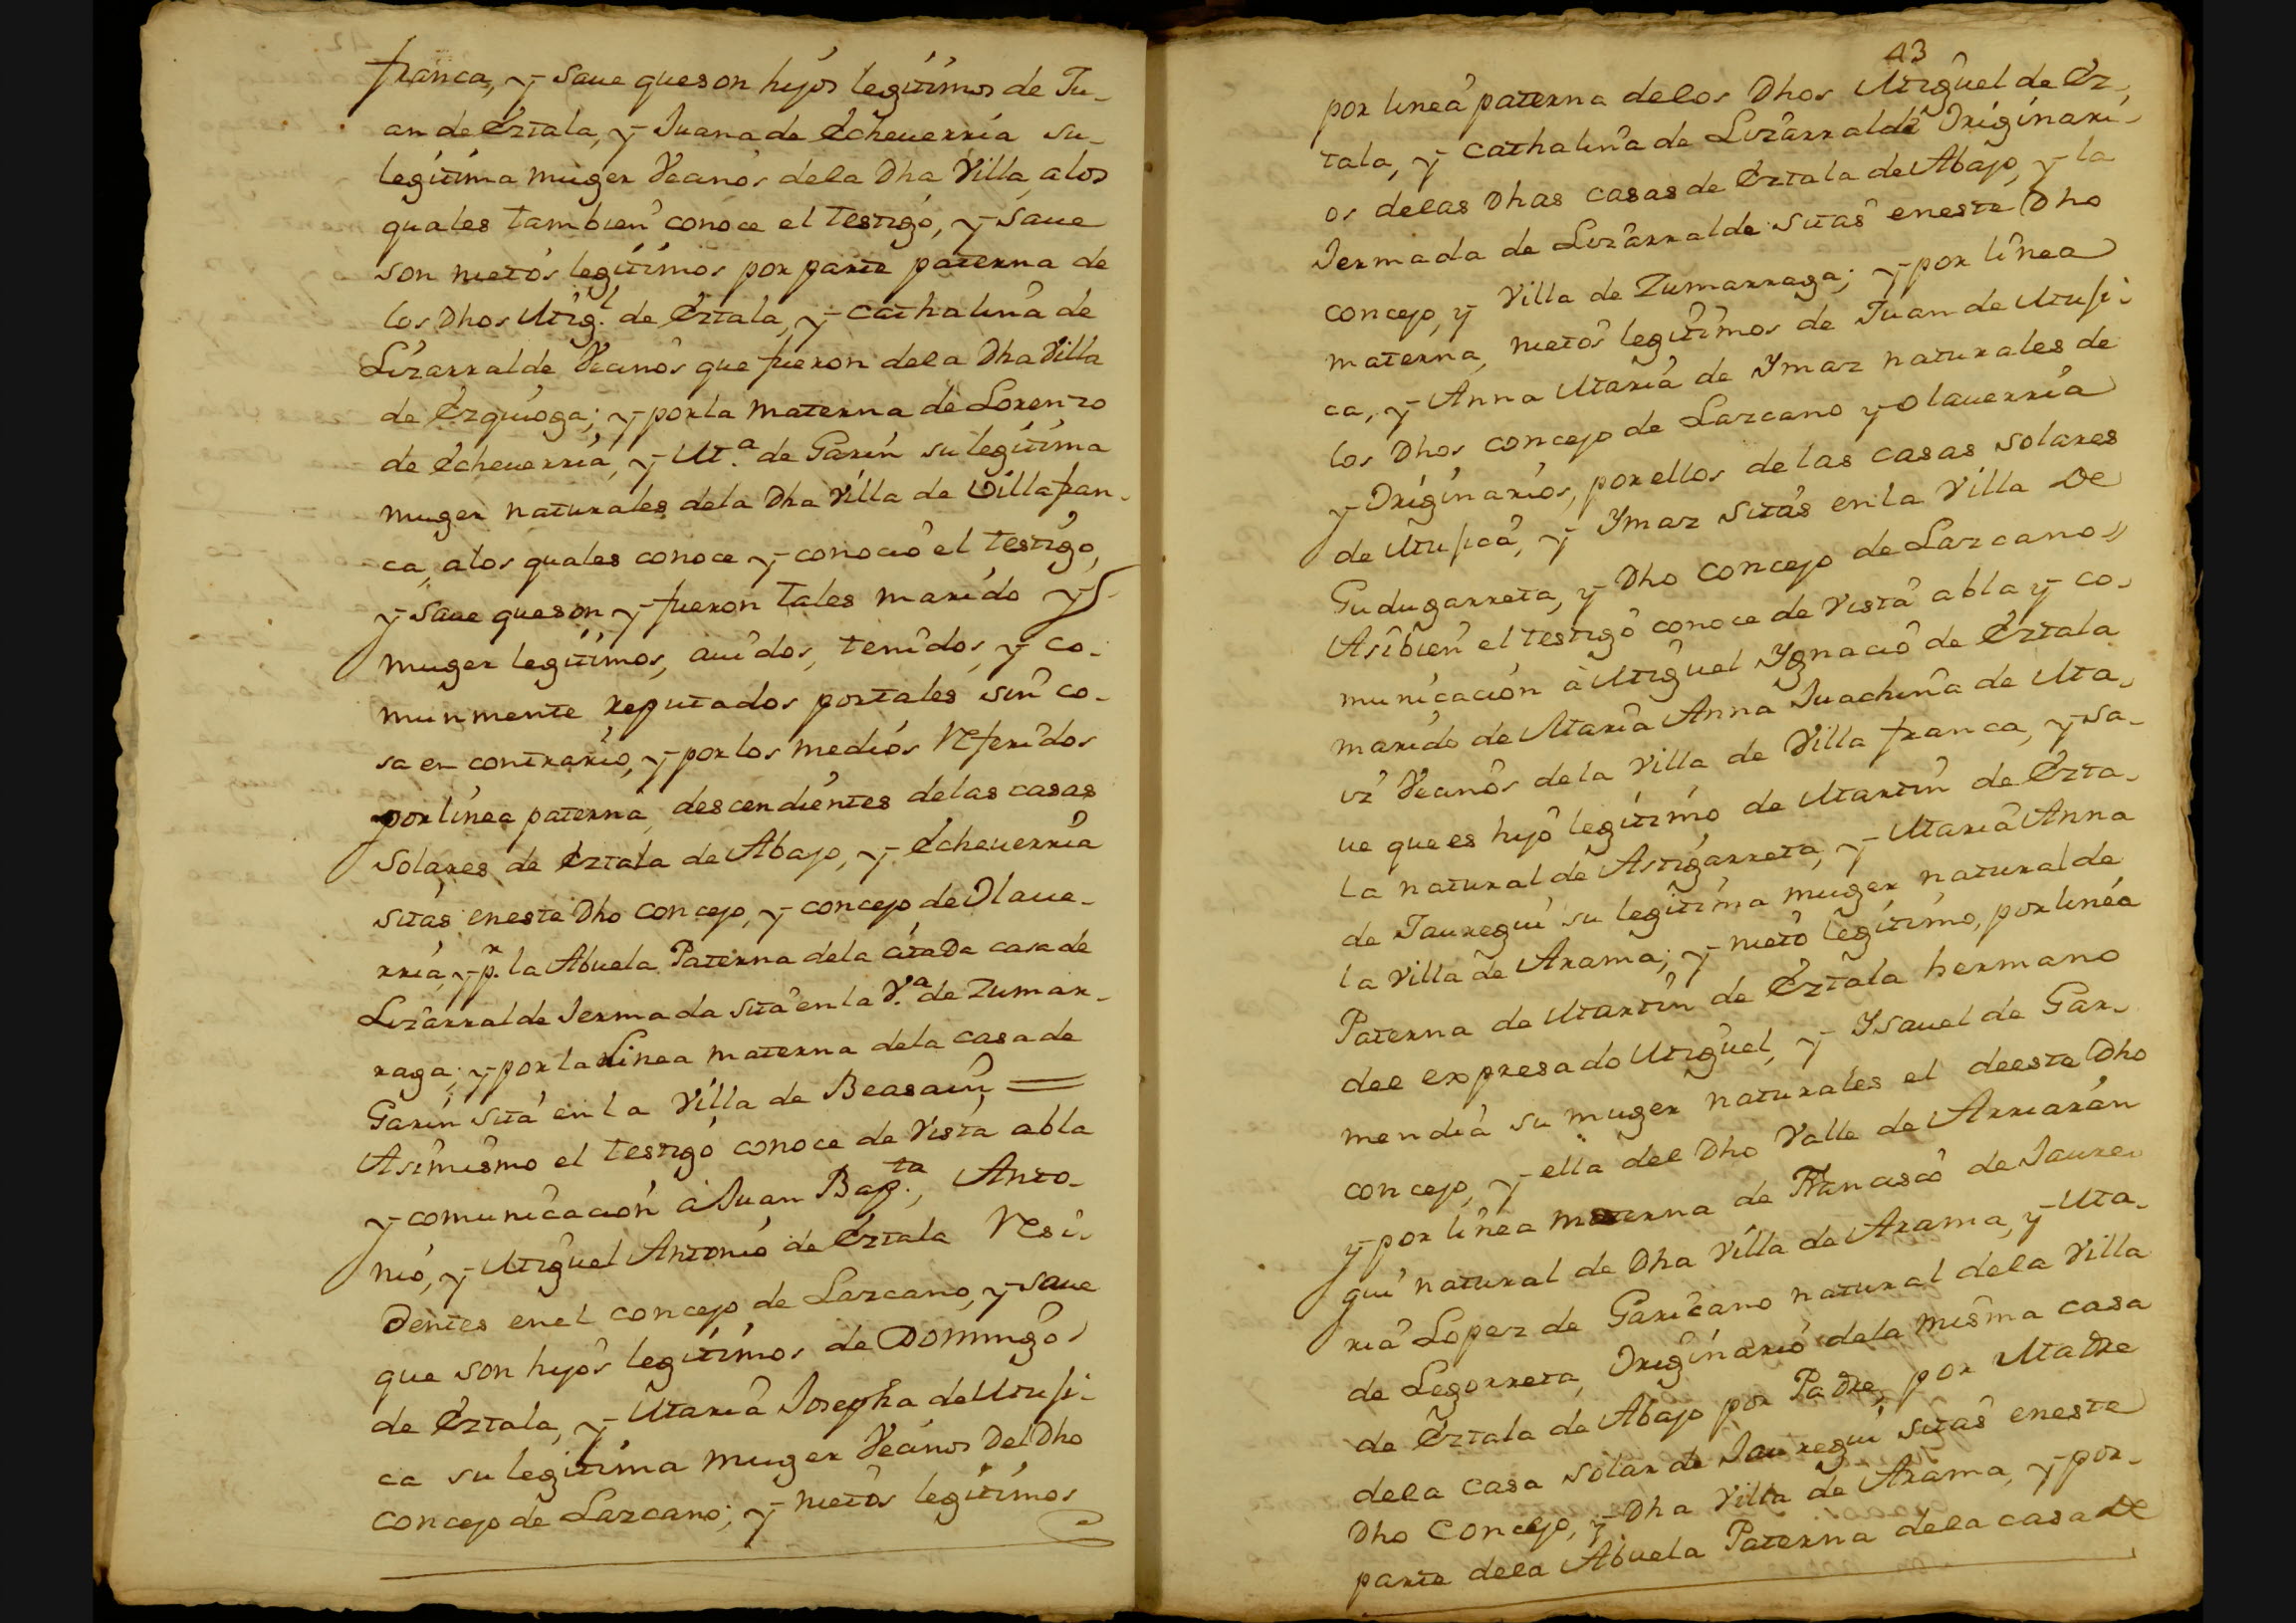 franca, y saue queson hijos legitimos de Ju-
an de Eztala, y Juana de Echeuerria su-
legitima muger Vecinos dela Dha Villa, alos
quales tambien conoce el testigo, y saue
son nietos legitimos por parte paterna de
los Dhos Mig.l de Eztala, y Cathalina de
Lizarralde Vecinos que fueron dela Dha Villa
de Ezquioga; y porla materna de Lorenzo
de Echeuerria, y M.a de Garin su legitima
muger naturales dela Dha Villa de Villafran-
ca, alos quales conoce y conocio el testigo,
y saue queson y fueron tales marido y
muger legitimos, auidos, tenidos, y co-
munmente reputados portales sin co-
sa en contrario, y por los medios referidos
por linea paterna, descendientes delas casas
Solares de Eztala de Abajo, y Echeuerria
sitas eneste Dho concejo, y concejo de Olaue-
rria, y p.r la Abuela Paterna dela citada casa de
Lizarralde Jermada sita en la V.a de Zumar-
raga; y por la Linea materna dela casa de
Garin sita en la Villa de Beasain =
Asimismo el testigo conoce de Vista abla
y comunicacion à Juan Bap.ta, Anto-
nio, y Miguel Antonio de Eztala Resi-
dentes enel concejo de Lazcano, y saue
que son hijos legitimos de Domingo
de Eztala, y Maria Josepha de Muxi-
ca su legitima muger Vecinos del Dho
concejo de Lazcano; y nietos legitimos
43
por linea paterna delos Dhos Miguel de Ez-
tala, y Cathalina de Lizarralde Originari-
os delas Dhas casas de Eztala de Abajo, y la
Jermada de Lizarralde sitas eneste Dho
concejo, y Villa de Zumarraga; y por linea
materna, nietos legitimos de Juan de Muxi-
ca, y Anna Maria de Ymaz naturales de
los Dhos concejo de Lazcano y Olauerria
y Originarios, por ellos de las casas solares
de Muxica, y Ymaz sitas en la Villa De
Gudugarreta, y Dho concejo de Lazcano
Asibien el testigo conoce de Vista abla y co-
municacion à Miguel Ygnacio de Eztala
marido de Maria Anna Juachina de Ma-
iz Vecinos dela Villa de Villa franca, y sa-
ue que es hijo legitimo de Martin de Ezta-
la natural de Astigarreta, y Maria Anna
de Jauregui su legitima muger natural de
la Villa de Arama; y nieto legitimo, por linea
Paterna de Martin de Eztala hermano
del expresado Miguel, y Ysauel de Gar-
mendia su muger naturales el deeste Dho
concejo, y ella del Dho Valle de Arriaran
y por linea materna de Francisco de Jaure-
gui natural de Dha Villa de Arama, y Ma-
ria Lopez de Garicano natural dela Villa
de Legorreta, Originario dela misma casa
de Eztala de Abajo por Padre, por Madre
dela casa solar de Jauregui sitas eneste
Dho Concejo, y Dha Villa de Arama, y por-
parte dela Abuela Paterna dela casa de